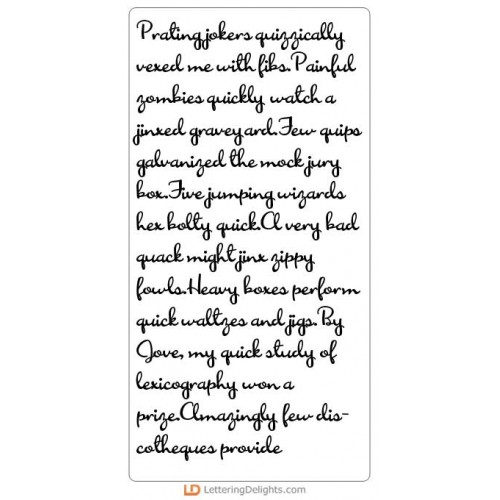 Prating jokers quizzically
vexed me with fibs. Painful
zombies quickly watch a
jinxed graveyard. Few quips
galvanized the mock jury
box. Five jumping wizards
hex bolty quick. A very bad
quack might jinx zippy
fowls. Heavy boxes perform
quick waltzes and jigs. By
Jove, my quick study of
lexicography won a
prize. Amazingly few dis-
cotheques provide
LD LetteringDelights.com